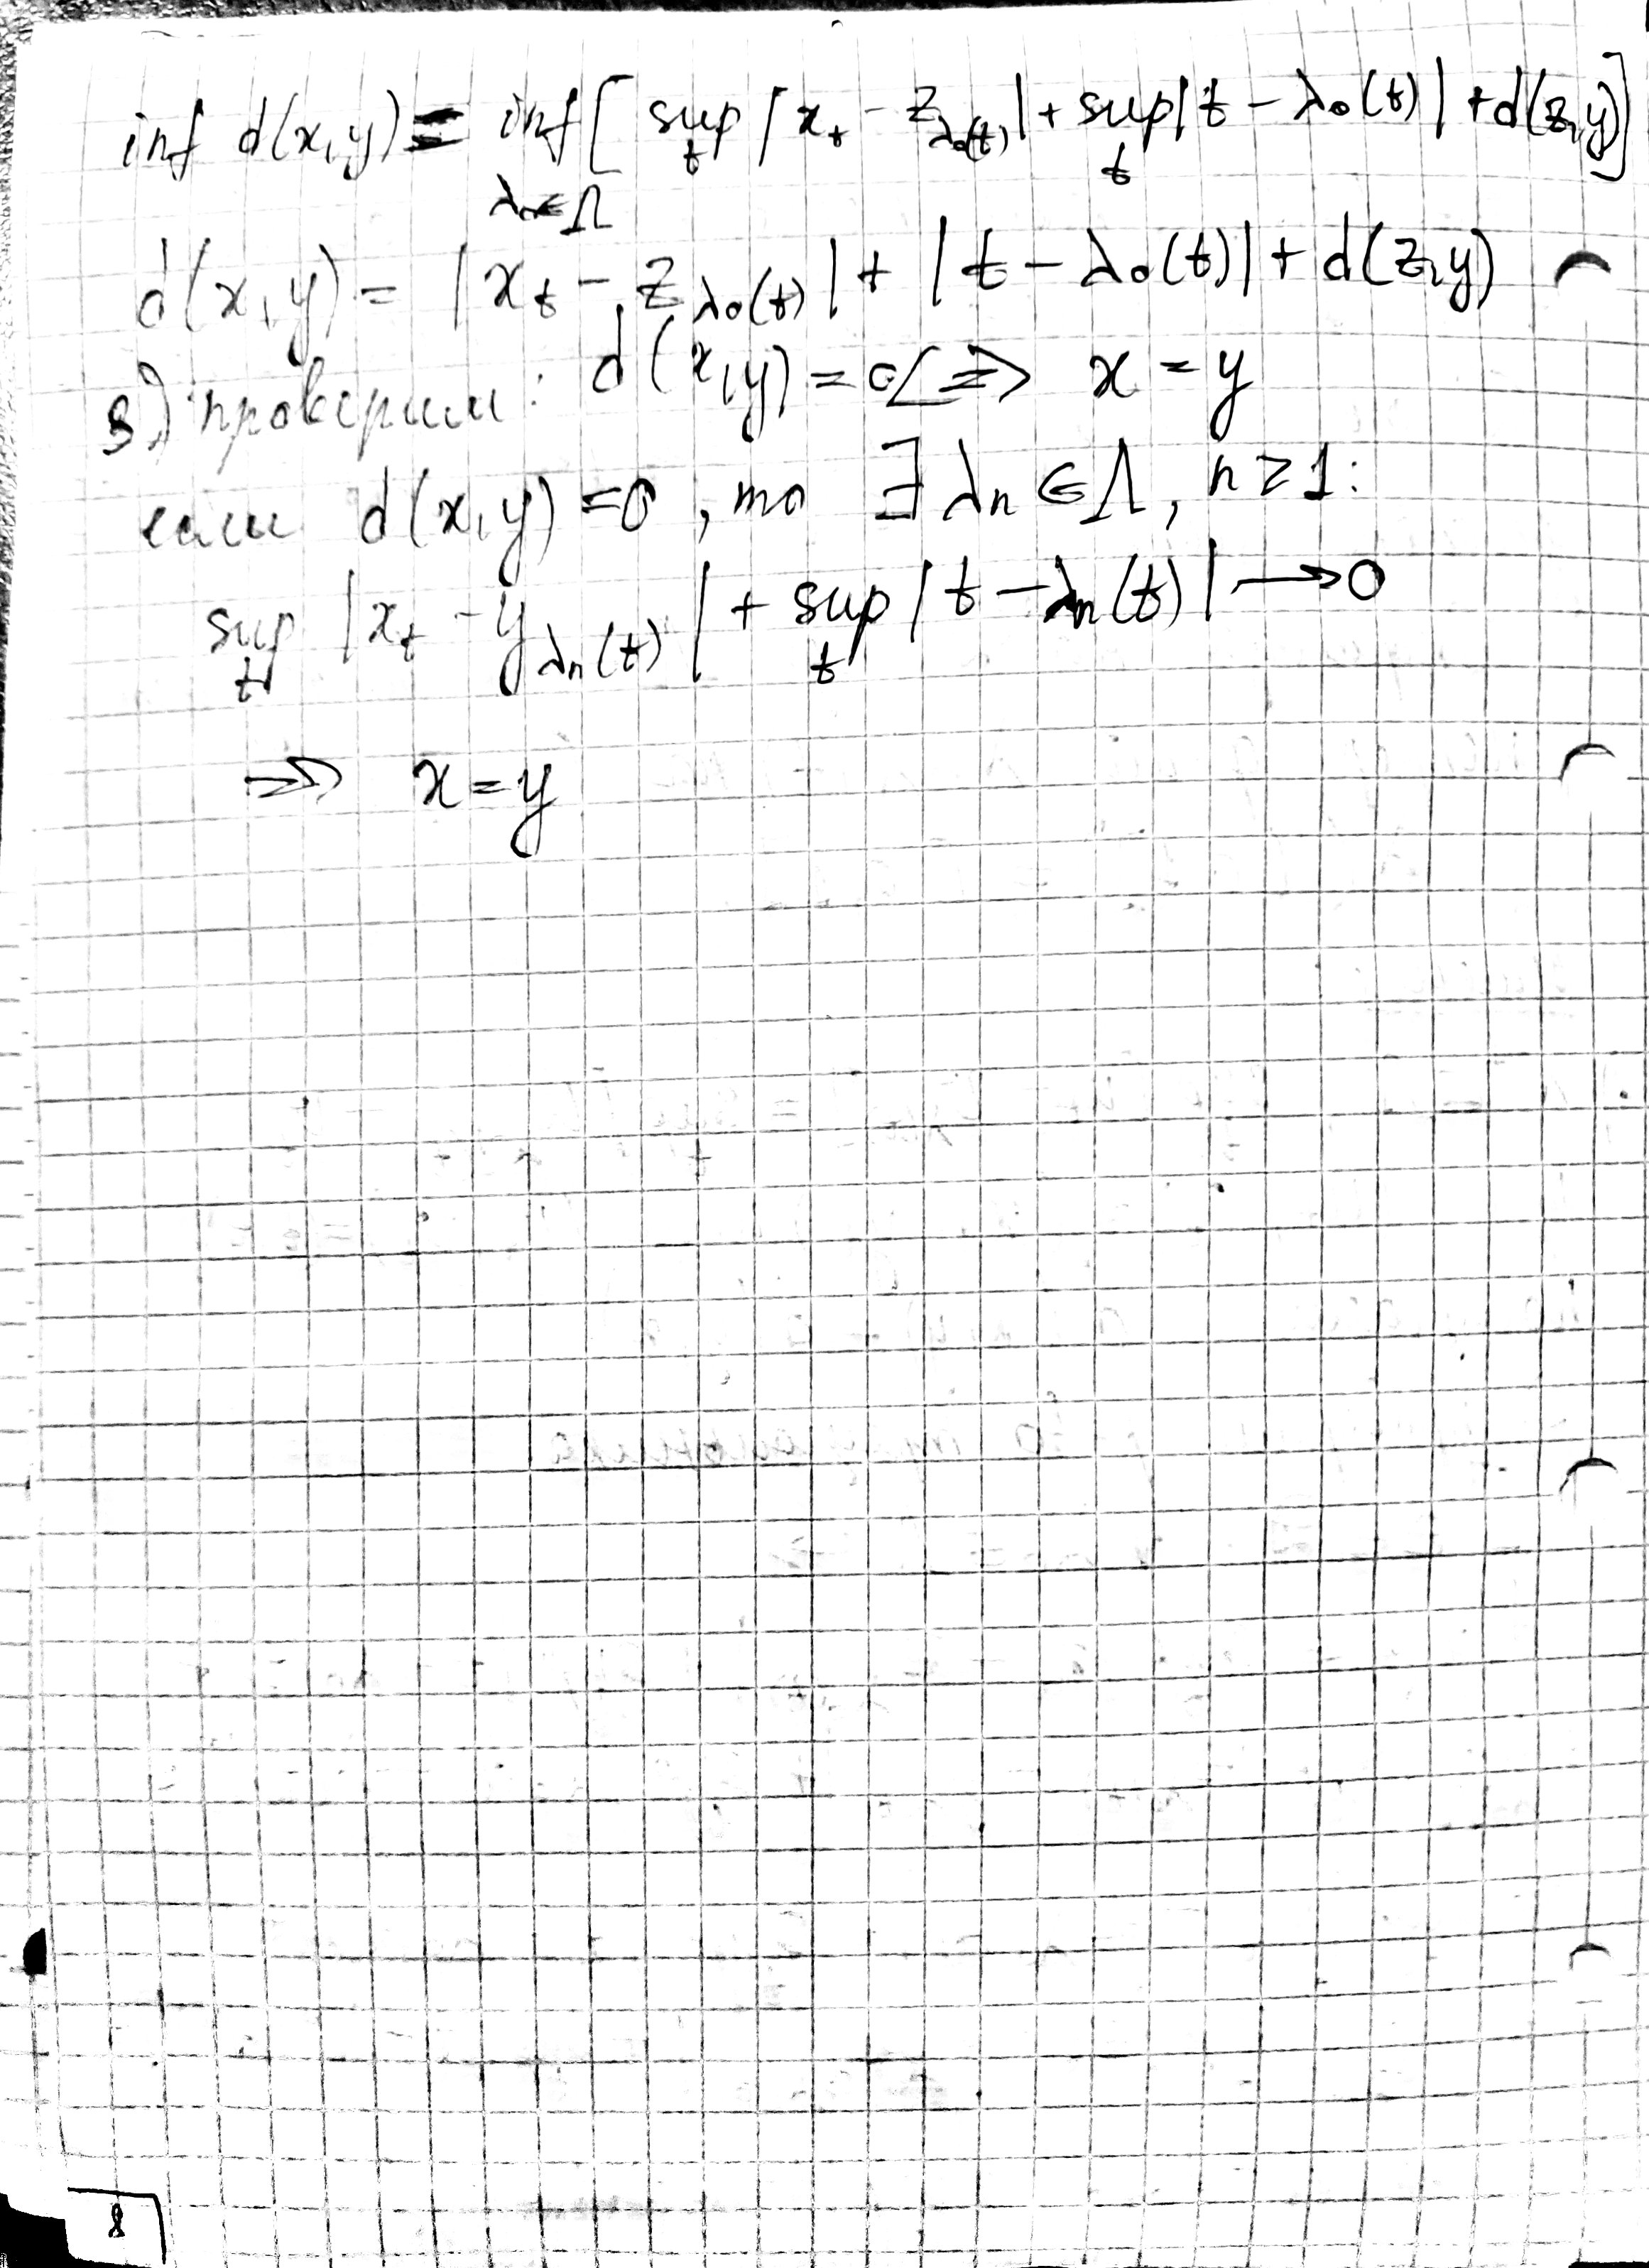 inf d(x,y) = inf [ sup |x_t - z_{λ₀(t)}| + sup |t - λ₀(t)| + d(z,y) ]
λ₀∈Λ t t
d(x,y) = |x_t - z_{λ₀(t)}| + |t - λ₀(t)| + d(z,y)
3) проверим: d(x,y) = 0 <=> x = y
если d(x,y) = 0, то ∃ λn ∈ Λ, n ≥ 1:
sup |x_t - y_{λn(t)}| + sup |t - λn(t)| → 0
t t
=> x = y
8